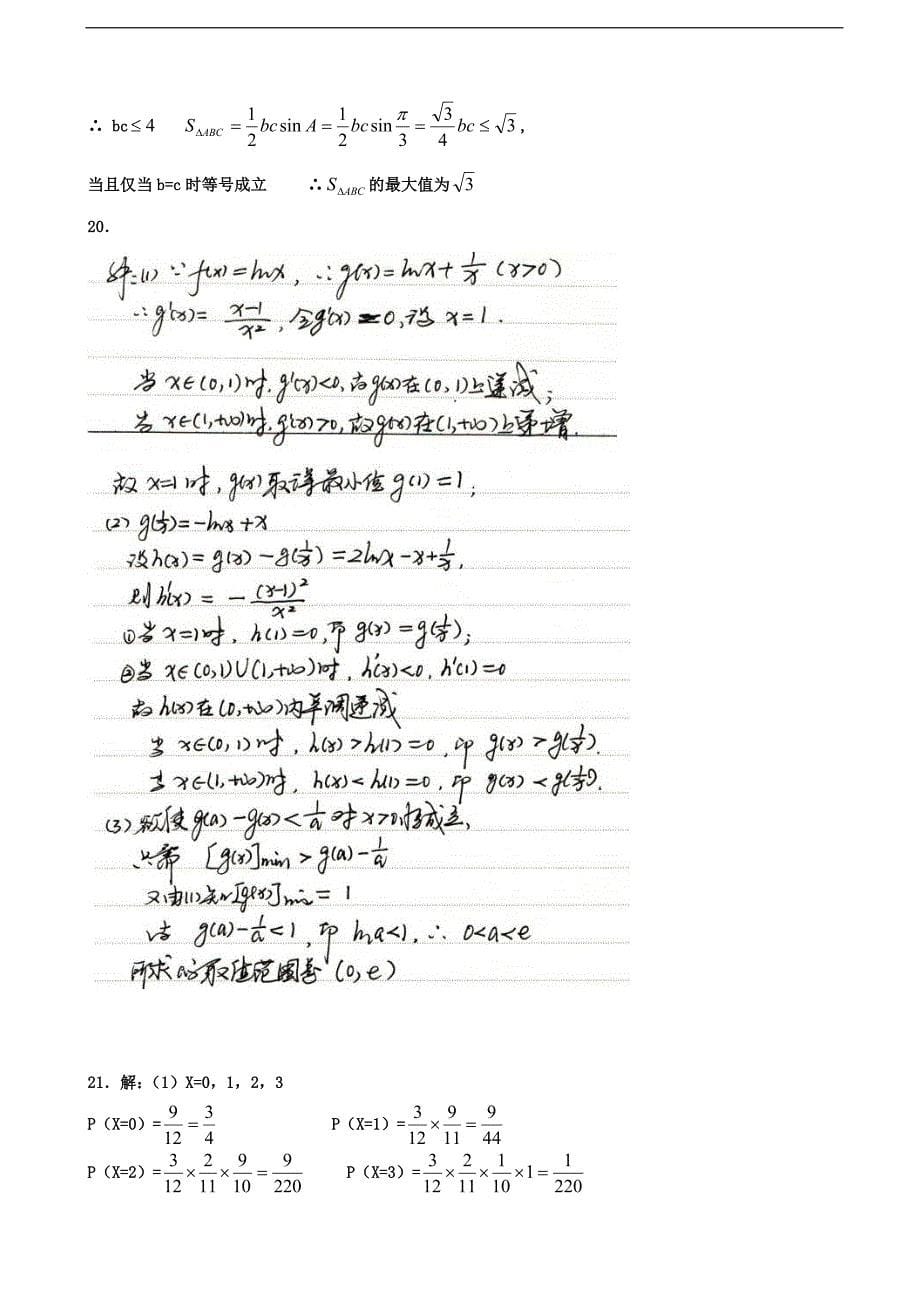 ∴ bc≤4 S_{ΔABC}=\frac{1}{2}bc sin A=\frac{1}{2}bc sin\frac{π}{3}=\frac{√3}{4}bc≤√3,
当且仅当 b=c 时等号成立 ∴S_{ΔABC}的最大值为√3
20.
解:(1) ∵f(x)=lnx, ∴g(x)=lnx+\frac{1}{x} (x>0)
∴g'(x)=\frac{x-1}{x^2}, 令g'(x)=0,得 x=1.
当 x∈(0,1)时, g'(x)<0,故g(x)在(0,1)上递减;
当 x∈(1,+∞)时, g'(x)>0,故g(x)在(1,+∞)上递增.
故 x=1 时, g(x)取得最小值 g(1)=1;
(2) g(\frac{1}{x})=-lnx+x
设h(x)=g(x)-g(\frac{1}{x})=2lnx-x+\frac{1}{x},
则h'(x)=-\frac{(x-1)^2}{x^2}
①当 x=1时, h(1)=0,即 g(x)=g(\frac{1}{x});
②当 x∈(0,1)∪(1,+∞)时, h'(x)<0, h'(1)=0
故h(x)在(0,+∞)内单调递减
当 x∈(0,1)时, h(x)>h(1)=0,即 g(x)>g(\frac{1}{x}).
当 x∈(1,+∞)时, h(x)<h(1)=0,即 g(x)<g(\frac{1}{x}).
(3) 欲使g(a)-g(x)<\frac{1}{a}对x>0恒成立,
只需 [g(x)]min>g(a)-\frac{1}{a}
又由(1)知[g(x)]min=1
g(a)-\frac{1}{a}<1,即 lna<1,∴ 0<a<e
所求a的取值范围是(0,e)
21.解:(1)X=0,1,2,3
P(X=0)=\frac{9}{12}=\frac{3}{4} P(X=1)=\frac{3}{12}×\frac{9}{11}=\frac{9}{44}
P(X=2)=\frac{3}{12}×\frac{2}{11}×\frac{9}{10}=\frac{9}{220} P(X=3)=\frac{3}{12}×\frac{2}{11}×\frac{1}{10}×1=\frac{1}{220}